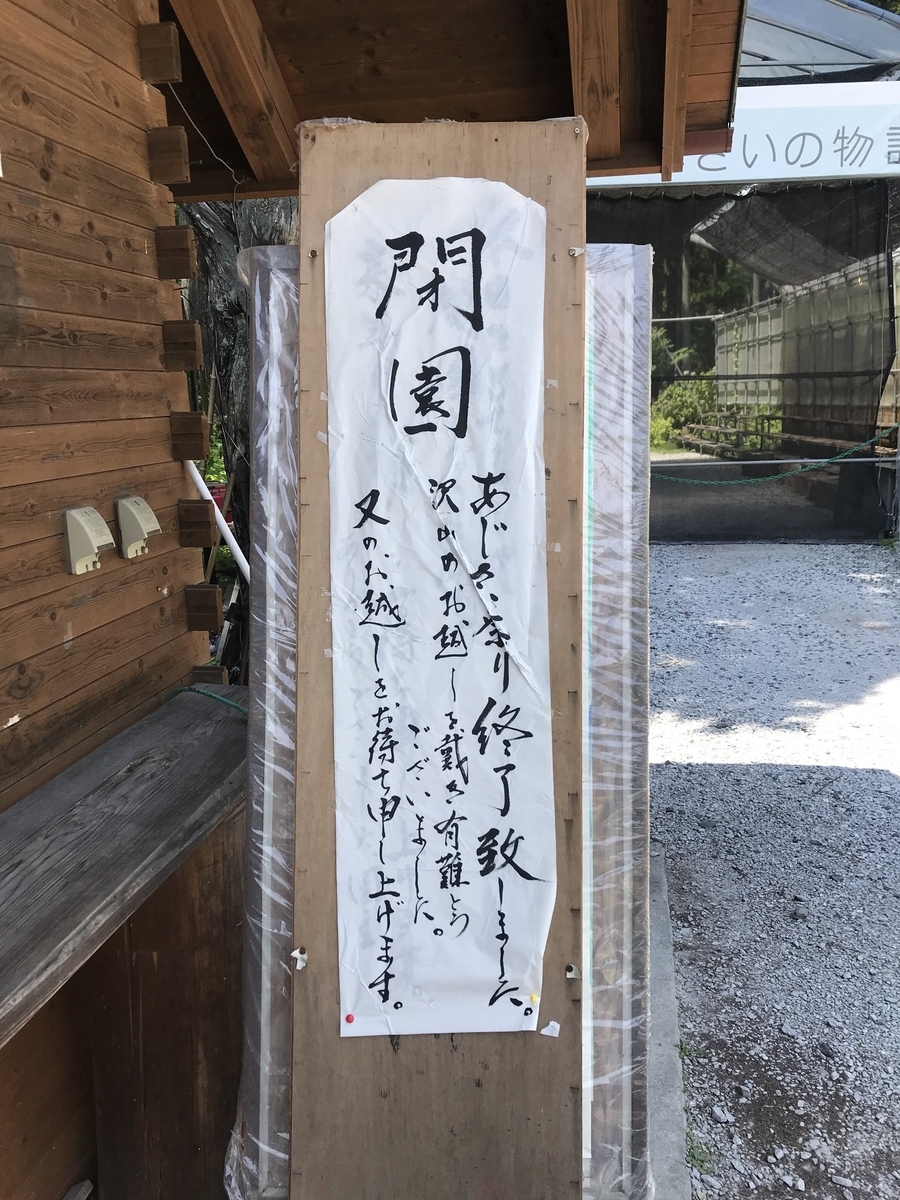 閉園
あじさい祭り終了致しました。
沢山のお越しを戴き有難とう
ございました。
又のお越しをお待ち申し上げます。
さいの物